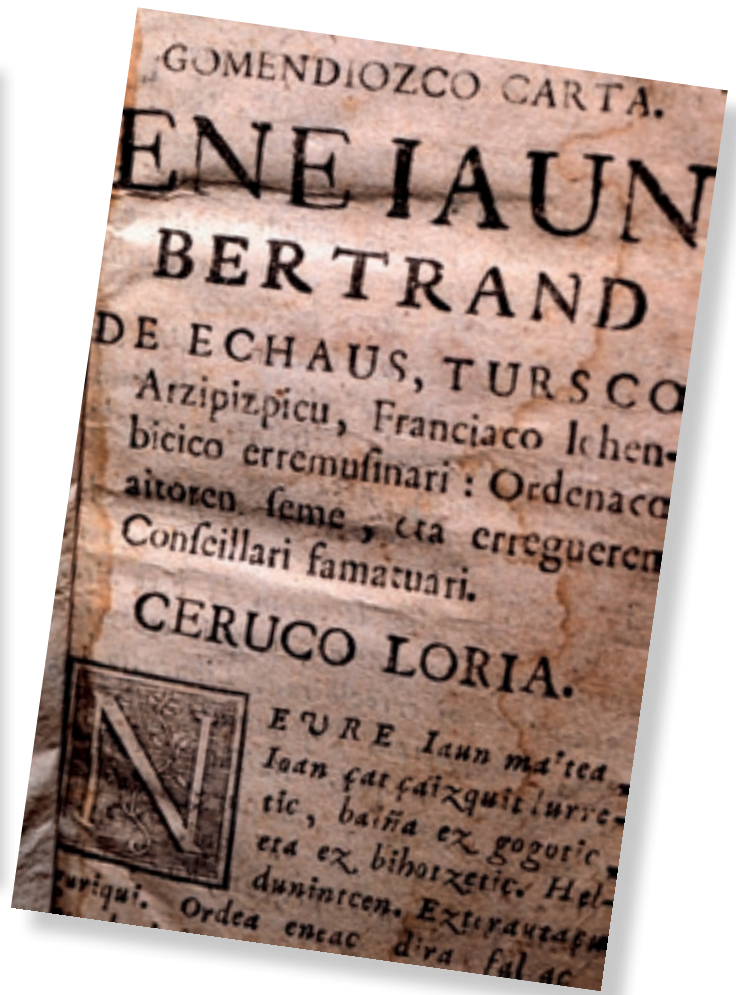 GOMENDIOZCO CARTA.
ENE IAUN
BERTRAND
DE ECHAUS, TURSCO
Arzipizpicu, Franciaco Ichen-
bicico erremuſinari : Ordenaco
aitoren ſeme, eta erregueren
Conſeillari famatuari.
CERUCO LORIA.
NEURE Iaun maitea,
Ioan çat çaizquit lurre-
tic, baiña ez gogotic,
eta ez bihotzetic. Hel-
dunintcen.
uriqui. Ordea eneac dira